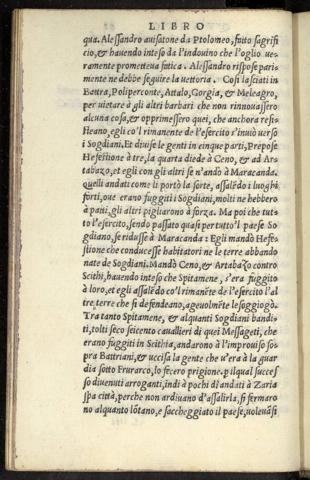 LIBRO
qua. Alessandro auisatone da Ptolomeo, fatto sagrifi
cio, & hauendo inteso da l'indouino che l'oglio ue-
ramente prometteua fatica. Alessandro rispose pari-
mente ne debbe seguire la uettoria. Cosi lasciati in
Battra, Poliperconte, Attalo, Gorgia, & Meleagro,
per uietare à gli altri barbari che non rinnouassero
alcuna cosa, & opprimessero quei, che anchora resi-
steano, egli co'l rimanente de l'esercito s'inuiò uerso
i Sogdiani. Et diuise le genti in cinque parti, Prepose
Hefestione à tre, la quarta diede à Ceno, & ad Ar-
tabazo, et egli con gli altri se n'andò à Maracanda.
quelli andati come li portò la sorte, assalēdo i luoghi
forti, oue erano fuggiti i Sogdiani, molti ne hebbero
à patti, gli altri pigliarono à forza. Ma poi che tut-
to l'esercito, sendo passato quasi per tutto'l paese So
gdiano, se ridusse à Maracanda: Egli mandò Hefe-
stione che conducesse habitatori ne le terre abbando
nate de Sogdiani. Mandò Ceno, & Artabazo contro
Scithi, hauendo inteso che Spitamene, s'era fuggito
à loro, et egli assalēdo co'l rimanēte de l'esercito l'al
tre terre che si defendeano, ageuolmēte le soggiogò.
Tra tanto Spitamene, & alquanti Sogdiani bandi-
ti, tolti seco seicento cauallieri di quei Messageti, che
erano fuggiti in Scithia, andarono à l'improuiso so-
pra Battriani, & uccisa la gente che u'era à la guar
dia sotto Frurarco, lo fecero prigione. p ilqual succes
so diuenuti arroganti, indi à pochi dì andati à Zaria
spa città, perche non ardiuano d'assalirla, si fermaro
no alquanto lōtano, e saccheggiato il paese, uoleuāsi